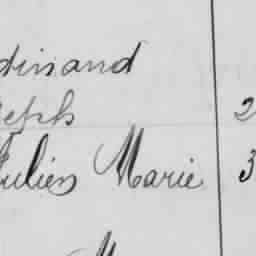 dinand
seph 2
Julien Marie 3
M